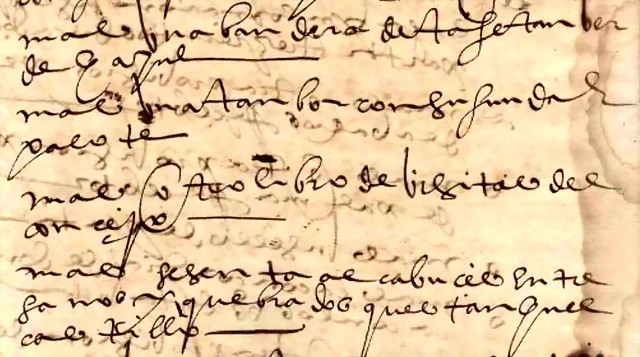 mas una bandera de tafetan ber
de y azul
mas un atambor con su funda y
palote
mas otro libro de visitas del
concejo
mas sesenta arcabuces entre
sanos y quebrados questan en el
castillo